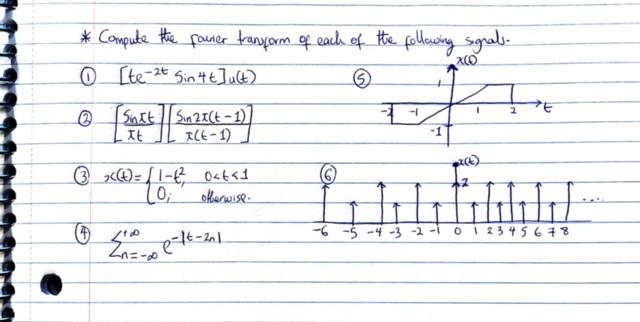 * Compute the fourier transform of each of the following signals.
① [te^{-2t} Sin4t]u(t)
② [Sinπt / πt] [Sin2π(t-1) / π(t-1)]
③ x(t) = { 1-t², 0<t<1
0; otherwise.
④ Σ_{n=-∞}^{+∞} e^{-|t-2n|}
⑤ x(t)
1
-2 -1 1 2 t
-1
⑥ x(t)
2
-6 -5 -4 -3 -2 -1 0 1 2 3 4 5 6 7 8 ....